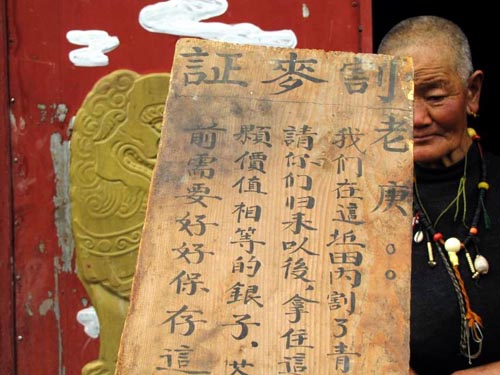 割麥証
老庚。。
我们在這坵田丙割了青
請你们归来以後,拿住這
顆價值相等的銀子,
前需要好好保存這